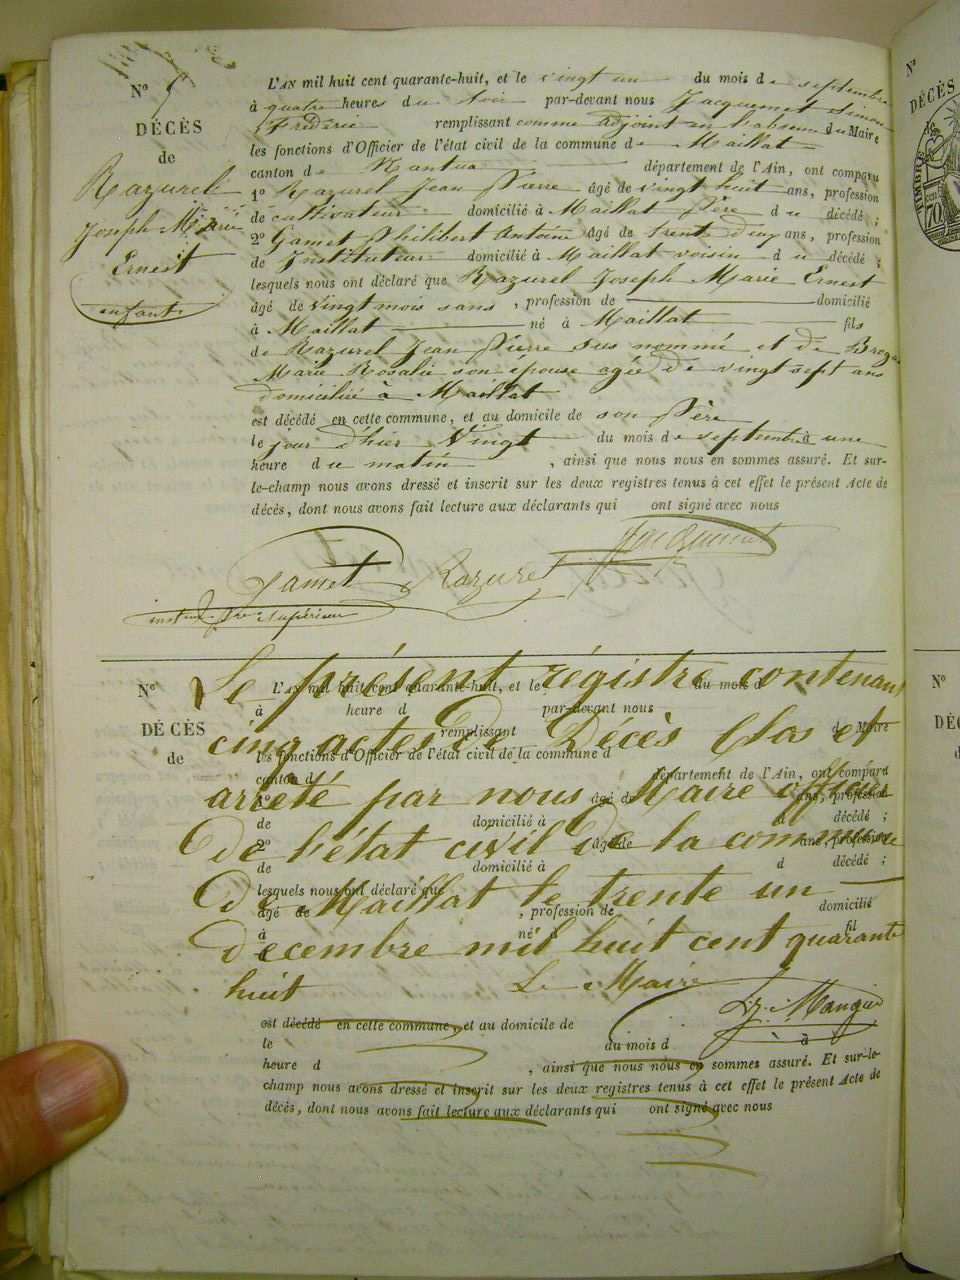 N° 5
DÉCÈS
de
Razurel
Joseph Marie
Ernest
enfant
L'AN mil huit cent quarante-huit, et le vingt un du mois de septembre
à quatre heures du soir par-devant nous Jacquemet Simon
Frédéric remplissant comme adjoint en l'absence du Maire
les fonctions d'Officier de l'état civil de la commune de Maillat
canton de Nantua département de l'Ain, ont comparu
1° Razurel Jean Pierre âgé de vingt huit ans, profession
de cultivateur domicilié à Maillat Père du décédé ;
2° Gamet Philibert Antoine âgé de trente deux ans, profession
de Instituteur domicilié à Maillat voisin du décédé ;
lesquels nous ont déclaré que Razurel Joseph Marie Ernest
âgé de vingt mois sans , profession de domicilié
à Maillat né à Maillat fils
de Razurel Jean Pierre sus nommé et de
Marie Rosalie son épouse agée de vingt sept ans
domiciliée à Maillat
est décédé en cette commune, et au domicile de son Père
le jour d'hier Vingt du mois de septembre à une
heure du matin , ainsi que nous nous en sommes assuré. Et sur-
le-champ nous avons dressé et inscrit sur les deux registres tenus à cet effet le présent Acte de
décès, dont nous avons fait lecture aux déclarants qui ont signé avec nous
Jacquemet
Gamet Razurel
N°
DÉCÈS
de
Le présent régistre contenant
cinq actes de Décès Clos et
arrêté par nous Maire officier
De l'état civil De la commune
De Maillat le trente un
décembre mil huit cent quarante
huit Le Maire
L'AN mil huit cent quarante-huit, et le du mois d
à heure d par-devant nous
remplissant de Maire
les fonctions d'Officier de l'état civil de la commune d
canton d département de l'Ain, ont comparu
1° âgé de ans, profession
de domicilié à d décédé ;
2° âgé de ans, profession
de domicilié à d décédé ;
lesquels nous ont déclaré que
âgé de , profession de domicilié
à né à fil
est décédé en cette commune, et au domicile de
le du mois d à
heure d , ainsi que nous nous en sommes assuré. Et sur-le-
champ nous avons dressé et inscrit sur les deux registres tenus à cet effet le présent Acte de
décès, dont nous avons fait lecture aux déclarants qui ont signé avec nous
N°
DÉCÈS
TIMBRE
70
N°